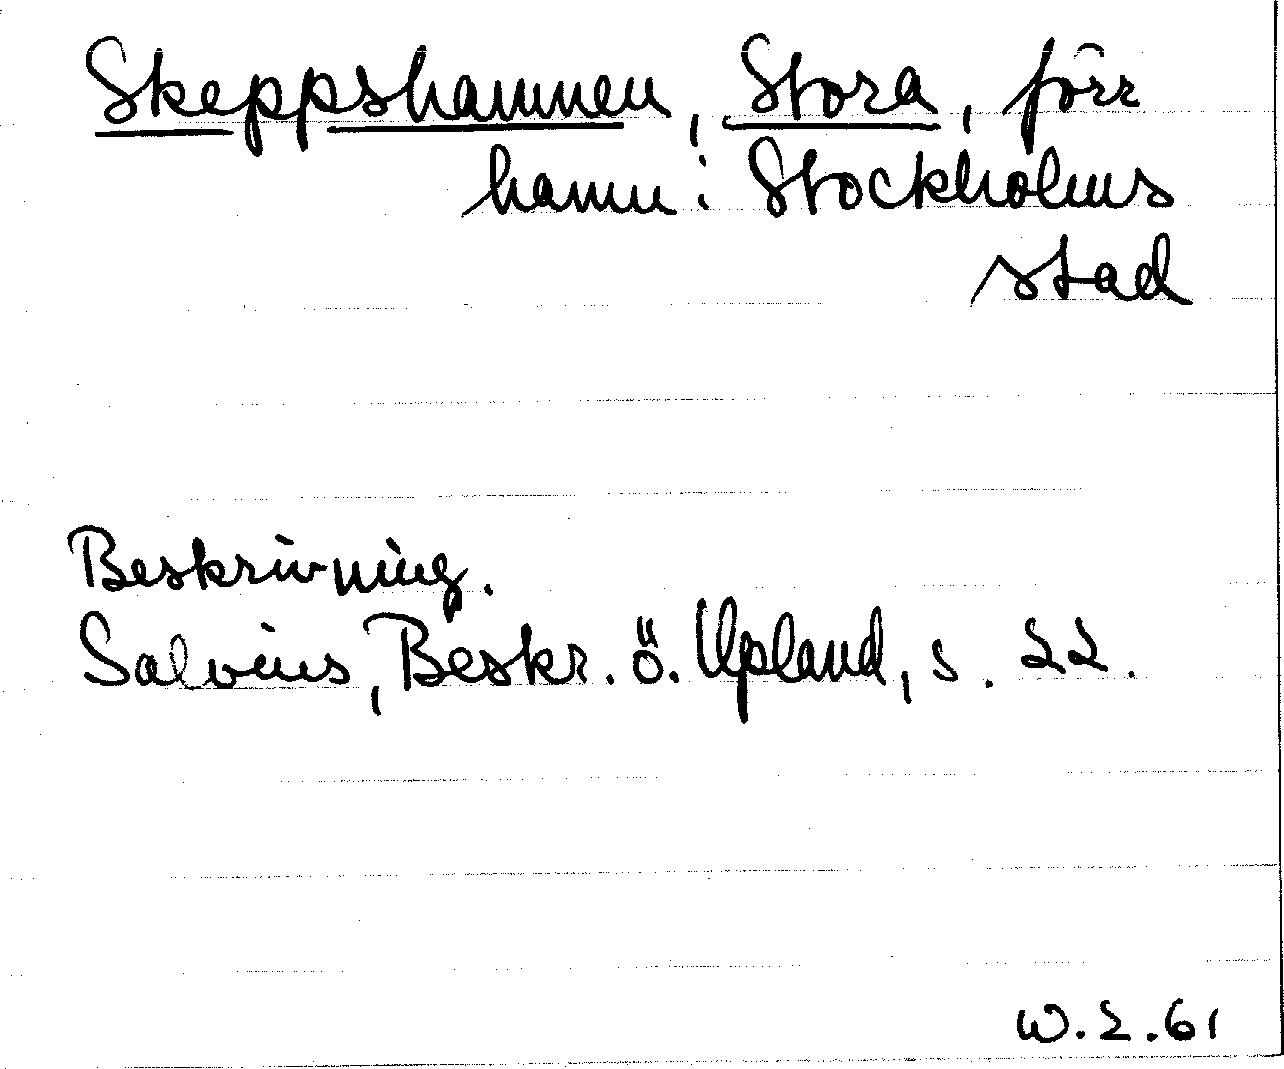 Skeppshamnen, Stora, förr
hamn i Stockholms
stad
Beskrivning.
Salvius, Beskr. ö. Upland, s. 22.
W.2.61